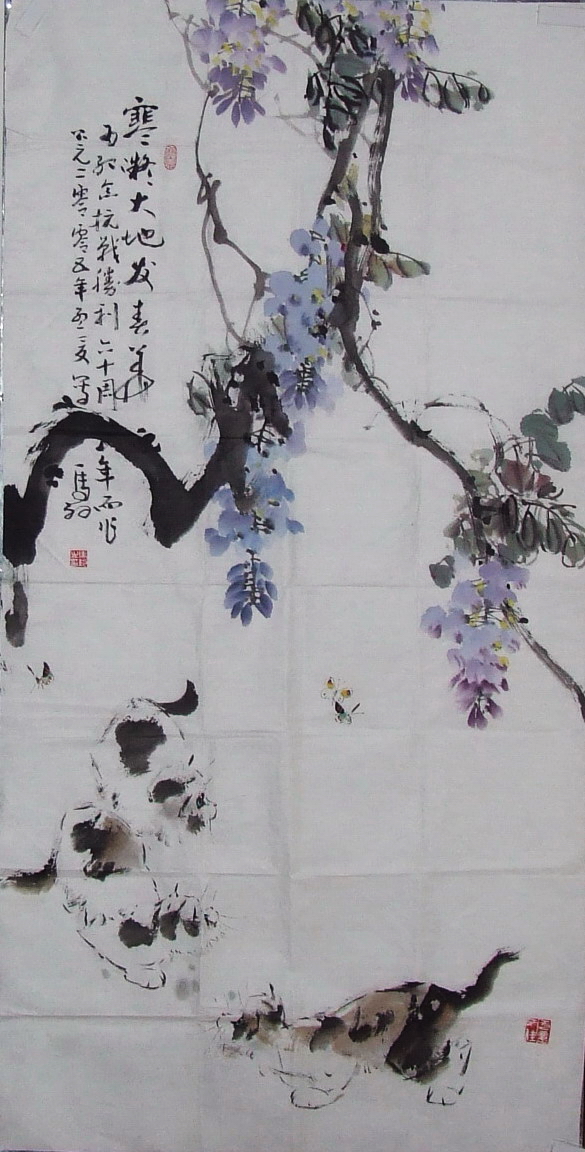 寒凝大地发春华
为纪念抗戰勝利六十周年而作
公元二零零五年孟夏写